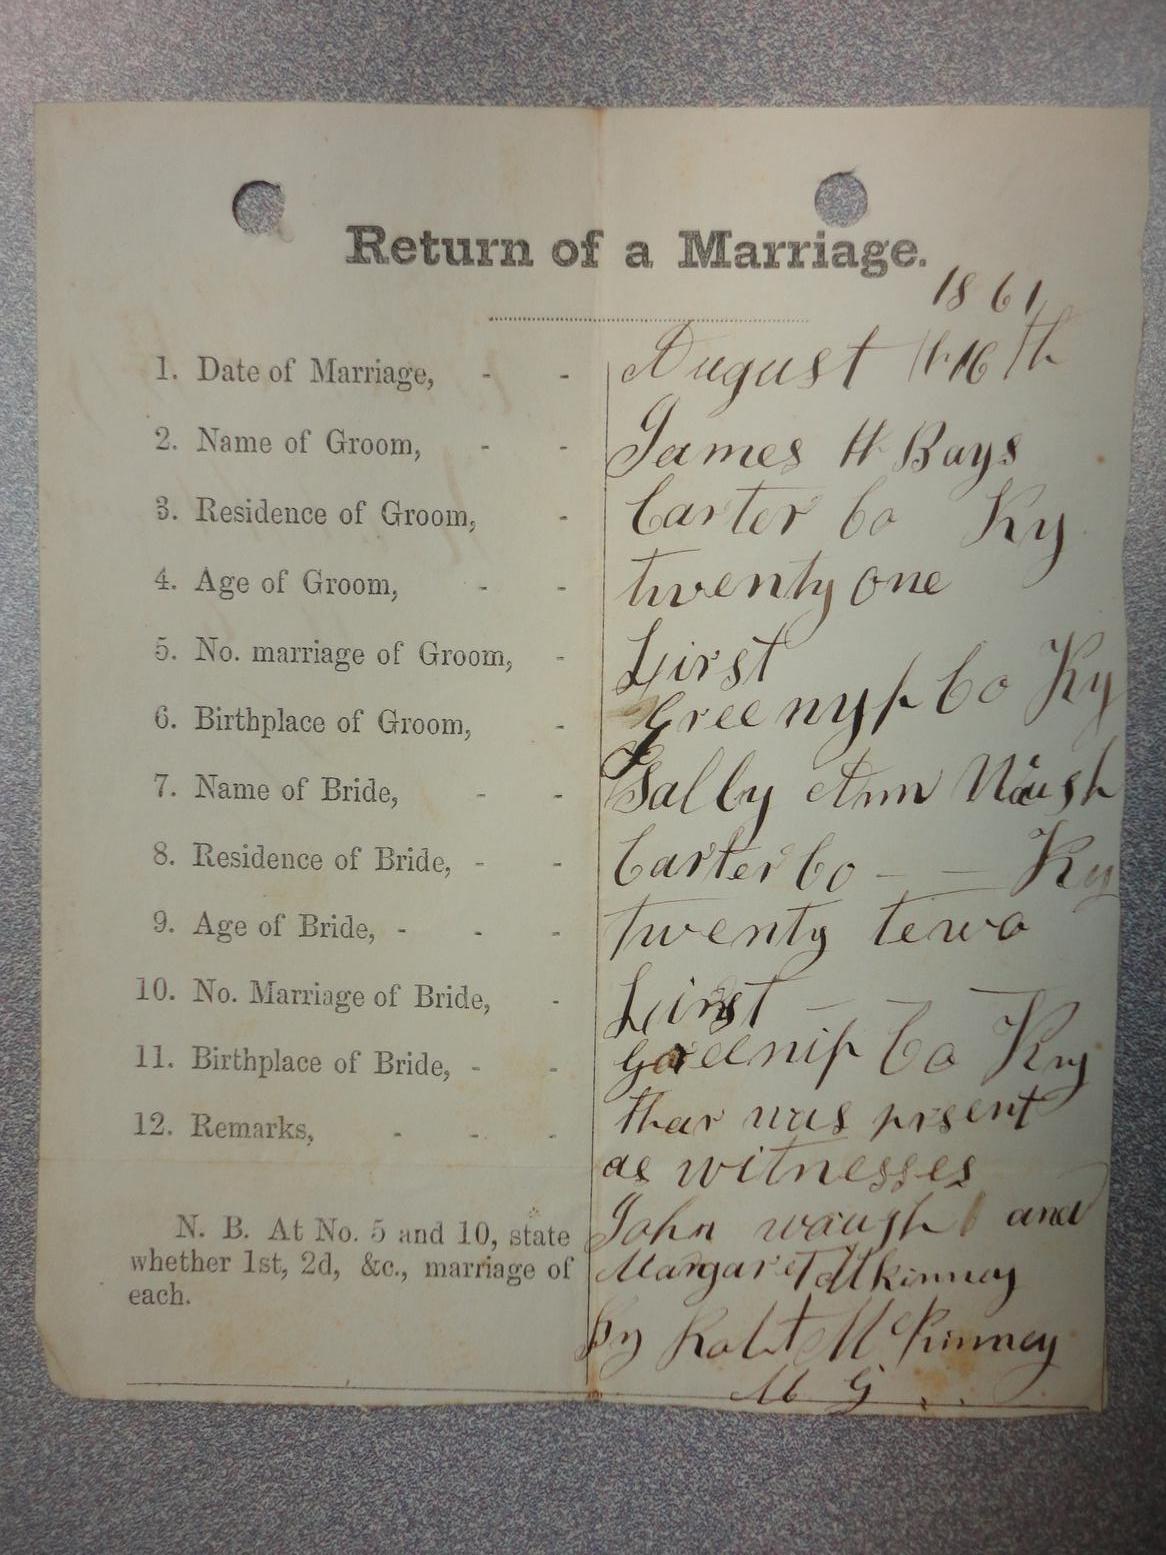 Return of a Marriage.
1861
1. Date of Marriage, - - August 16th
2. Name of Groom, - - James H Bays
3. Residence of Groom, - Carter Co Ky
4. Age of Groom, - - twenty one
5. No. marriage of Groom, - First
6. Birthplace of Groom, - Greenyp Co Ky
7. Name of Bride, - - Sally Ann Waugh
8. Residence of Bride, - - Carter Co - - Ky
9. Age of Bride, - - - twenty tewo
10. No. Marriage of Bride, - First -
11. Birthplace of Bride, - - Greenip Co Ky
12. Remarks, - - - thar was prsent
as witnesses
John waugh and
Margaret Mkinney
By Robt McKinney
M G
N. B. At No. 5 and 10, state
whether 1st, 2d, &c., marriage of
each.